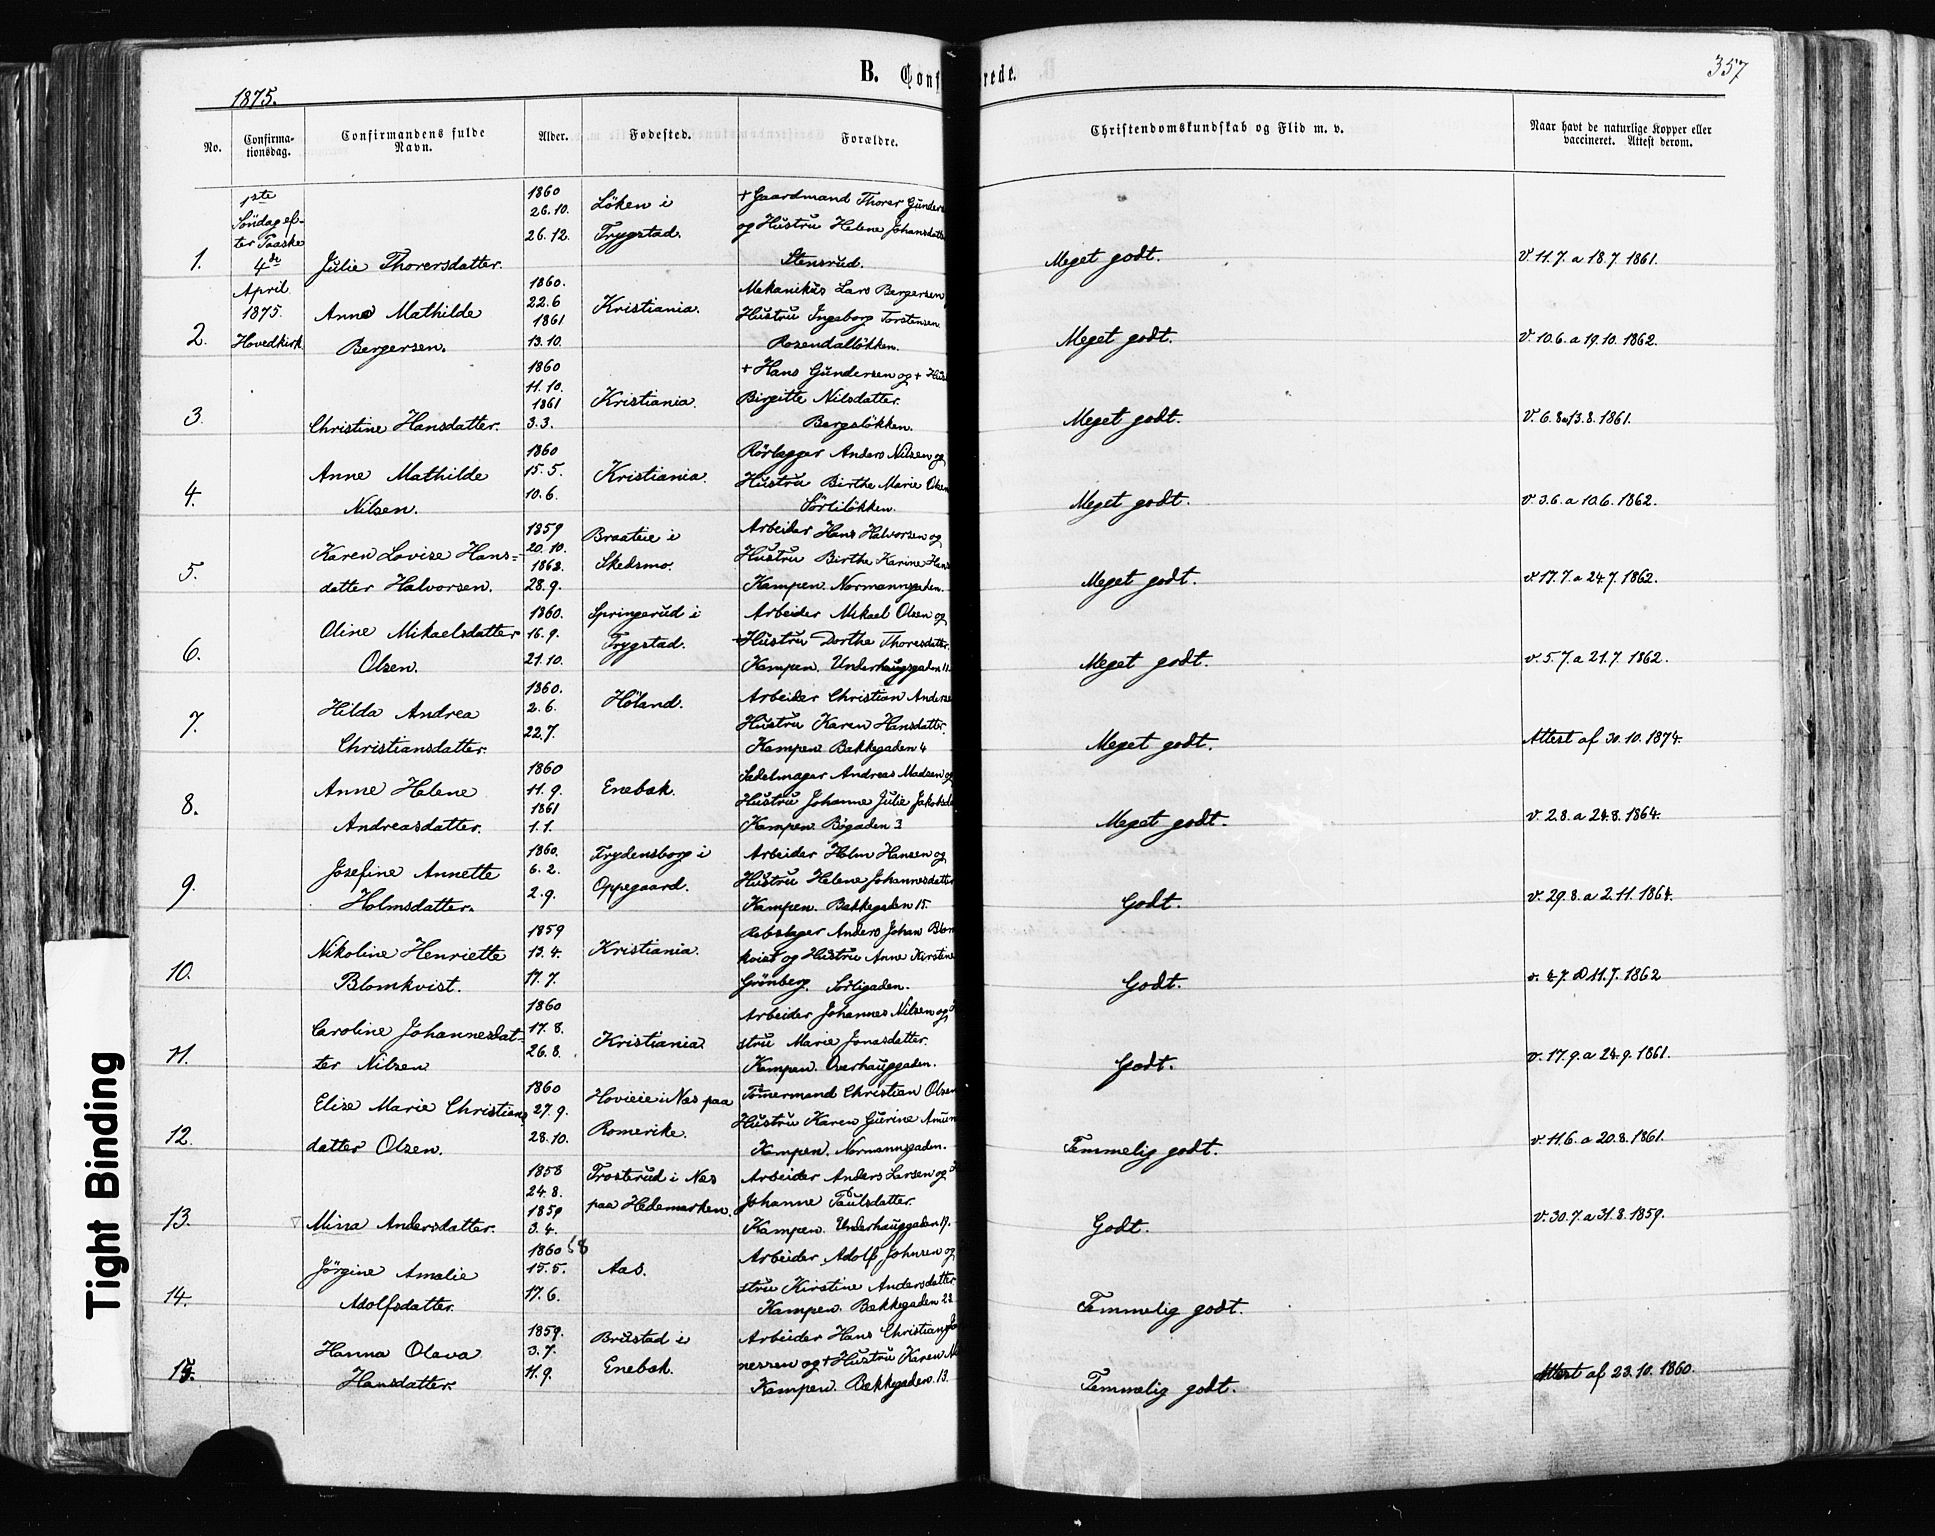 B. Conf rede.
357
1875.
No.
Confirma-
tionsdag.
Confirmandens fulde
Navn.
Alder.
Fødested.
Forældre.
Christendomskundskab og Flid m. v.
Naar havt de naturlige Kopper eller
vaccineret. Attest derom.
1ste
Söndag ef-
ter Paaske
4de
April
1875.
Hovedkirk
1. Julie Thorersdatter.
1860
26.10.
26.12.
Löken i
Trygstad.
+ Gaardmand Thorer Gunders
og Hustru Helene Johansdatt
Stensrud.
Meget godt.
V. 11.7. a 18.7 1861.
2. Anne Mathilde
Bergersen.
1860.
22.6
1861
13.10.
Kristiania.
Mekanikus Lars Bergersen
Hustru Ingeborg Torstensen.
Rosendallökken.
Meget godt.
V. 10.6. a 19.10. 1862.
3. Christine Hansdatter.
1860
11.10.
1861
3.3.
Kristiania.
+ Hans Gundersen og + Hus
Birgitte Nilsdatter.
Bergslökken.
Meget godt.
V. 6.8 a 13.8. 1861.
4. Anne Mathilde
Nilsen.
1860
15.5.
10.6.
Kristiania.
Rörlægger Anders Nilsen og
Hustru Birthe Marie Olsen
Sörlilökken.
Meget godt.
V. 3.6. a 10.6. 1862.
5. Karen Lovise Hans-
datter Halvorsen.
1859
20.10.
1862.
28.9.
Braateie i
Skedsmo.
Arbeider Hans Halvorsen og
Hustru Birthe Karine Hans
Kampen. Normannsgaden.
Meget godt.
V 17.7. a 24.7. 1862.
6. Oline Mikaelsdatter
Olsen.
1860.
16.9.
21.10.
Springerud i
Trygstad.
Arbeider Mikael Olsen og
Hustru Dorthe Thoresdatter.
Kampen. Underhaugsgaden 11
Meget godt.
v. 5.7. a 21.7. 1862.
7. Hilda Andrea
Christiansdatter.
1860.
2.6.
22.7.
Höland.
Arbeider Christian Anderse
Hustru Karen Hansdatter.
Kampen. Bakkegaden 4
Meget godt.
Attest af 30.10. 1874.
8. Anne Helene
Andreasdatter.
1860
11.9.
1861
1.1.
Enebak.
Sadelmager Andreas Madsen og
Hustru Johanne Julie Jakobsda
Kampen. Bögaden 3
Meget godt.
V. 2.8. a 24.8. 1864.
9. Josefine Annette
Holmsdatter.
1860.
6.2.
2.9.
Frydensborg i
Oppegaard.
Arbeider Holm Hansen og
Hustru Helene Johannesdatter
Kampen. Bakkegaden 15.
Godt.
v. 29.8. a 2.11. 1864.
10. Nikoline Henriette
Blomkvist.
1859
13.4.
17.7.
Kristiania.
Rebslager Anders Johan Blom
kvist og Hustru Anne Kirstine
Grönberg. Sörligaden.
Godt.
v. 4.7. a 11.7. 1862
11. Caroline Johannesdat-
ter Nilsen
1860
17.8.
26.8.
Kristiania.
Arbeider Johannes Nilsen og
stru Marie Jonasdatter.
Kampen. Overhauggaden.
Godt.
v. 17.9. a 24.9. 1861.
12. Elise Marie Christians
datter Olsen.
1860
27.9.
28.10.
Hovieie i Næs paa
Romerike.
Tömermand Christian Olsen
Hustru Karen Gurine Amun
Kampen. Normannsgaden.
Temmelig godt.
v. 11.6. a 20.8. 1861.
13. Mina Andersdatter.
1858
24.8.
1859
3.4.
Frosterud i Næs
paa Hedemarken.
Arbeider Anders Larsen og
Johanne Paulsdatter.
Kampen. Underhauggaden 17.
Godt.
V. 30.7. a 31.8. 1859.
14. Jörgine Amalie
Adolfsdatter.
1860 58
15.5.
17.6.
Aas.
Arbeider Adolf Johnsen og
stru Kirstine Andersdatter
Kampen. Bakkegaden 22
Temmelig godt.
15. Hanna Olava
Hansdatter.
1859.
3.7.
11.9.
Brustad i
Enebak.
Arbeider Hans Christian Jo
nessen og + Hustru Karen N
Kampen. Bakkegaden. 13.
Temmelig godt.
Attest af 23.10. 1860.
Tight Binding